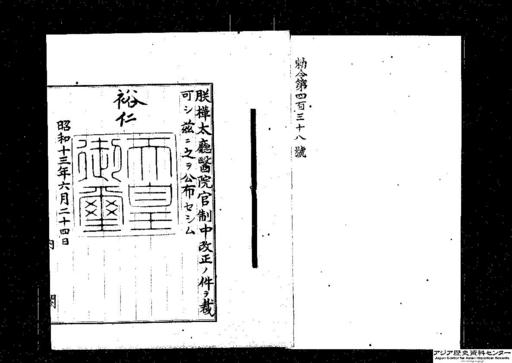 勅令第四百三十八號
朕樺太廳醫院官制中改正ノ件ヲ裁
可シ茲ニ之ヲ公布セシム
裕仁
天皇
御璽
昭和十三年六月二十四日
内閣
アジア歴史資料センター
Japan Center for Asian Historical Records